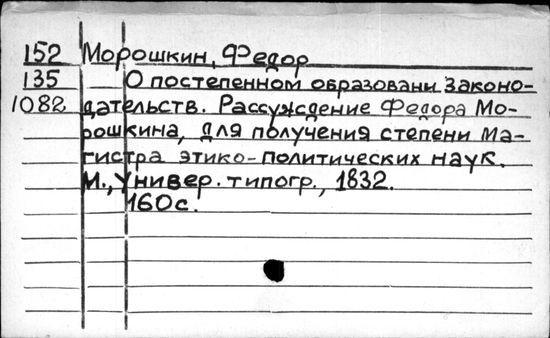 152 Морошкин, Федор
135 О постепенном образовани законо-
1082 дательств. Рассуждение Федора Мо-
рошкина, для получения степени Ма-
гистра этико-политических наук.
М., Универ. типогр., 1832.
160с.